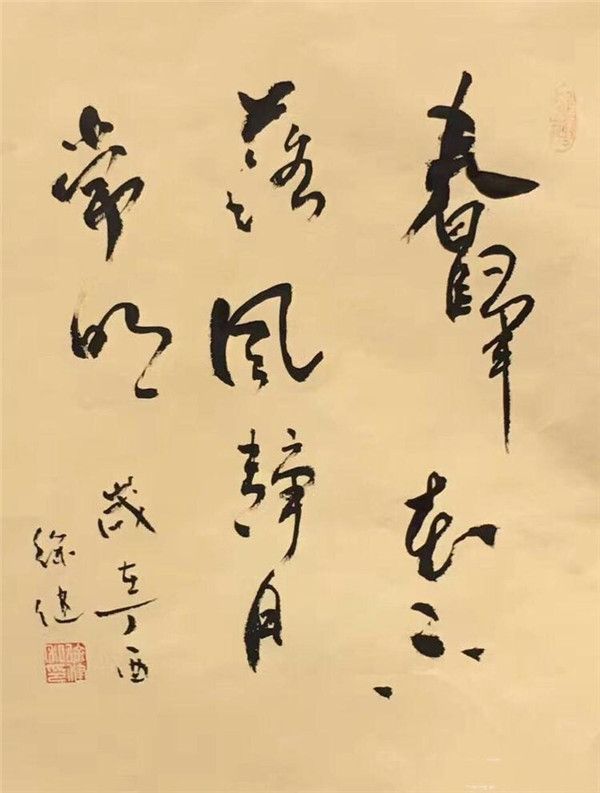 春歸花不
落風靜月
常明
歲在丁酉
徐健